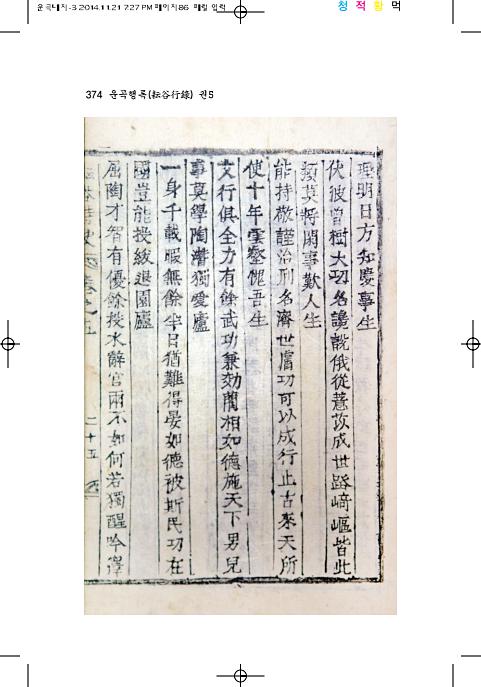 운곡내지-3 2014.11.21 7:27 PM 페이지86 입력
청 적 황 먹
374 운곡행록(耘谷行錄) 권5
理明日方知慶事生
伏彼曾樹大功名讒說俄從薏苡成世路崎嶇皆此
類莫將閑事歎人生
能持敬謹治刑名濟世膚功可以成行止古來天所
使十年雲壑愧吾生
文行俱全力有餘武功兼効藺相如德施天下男兒
事莫學陶潛獨愛廬
一身千載暇無餘半日猶難得晏如德被斯民功在
國豈能投紱退園廬
屈陶才智有優餘投水辭官兩不如何若獨醒吟澤
卷之五 二十五